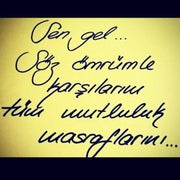 Sen, gel...
Söz ömrümle
karşılarım
tüm mutluluk
masraflarını...